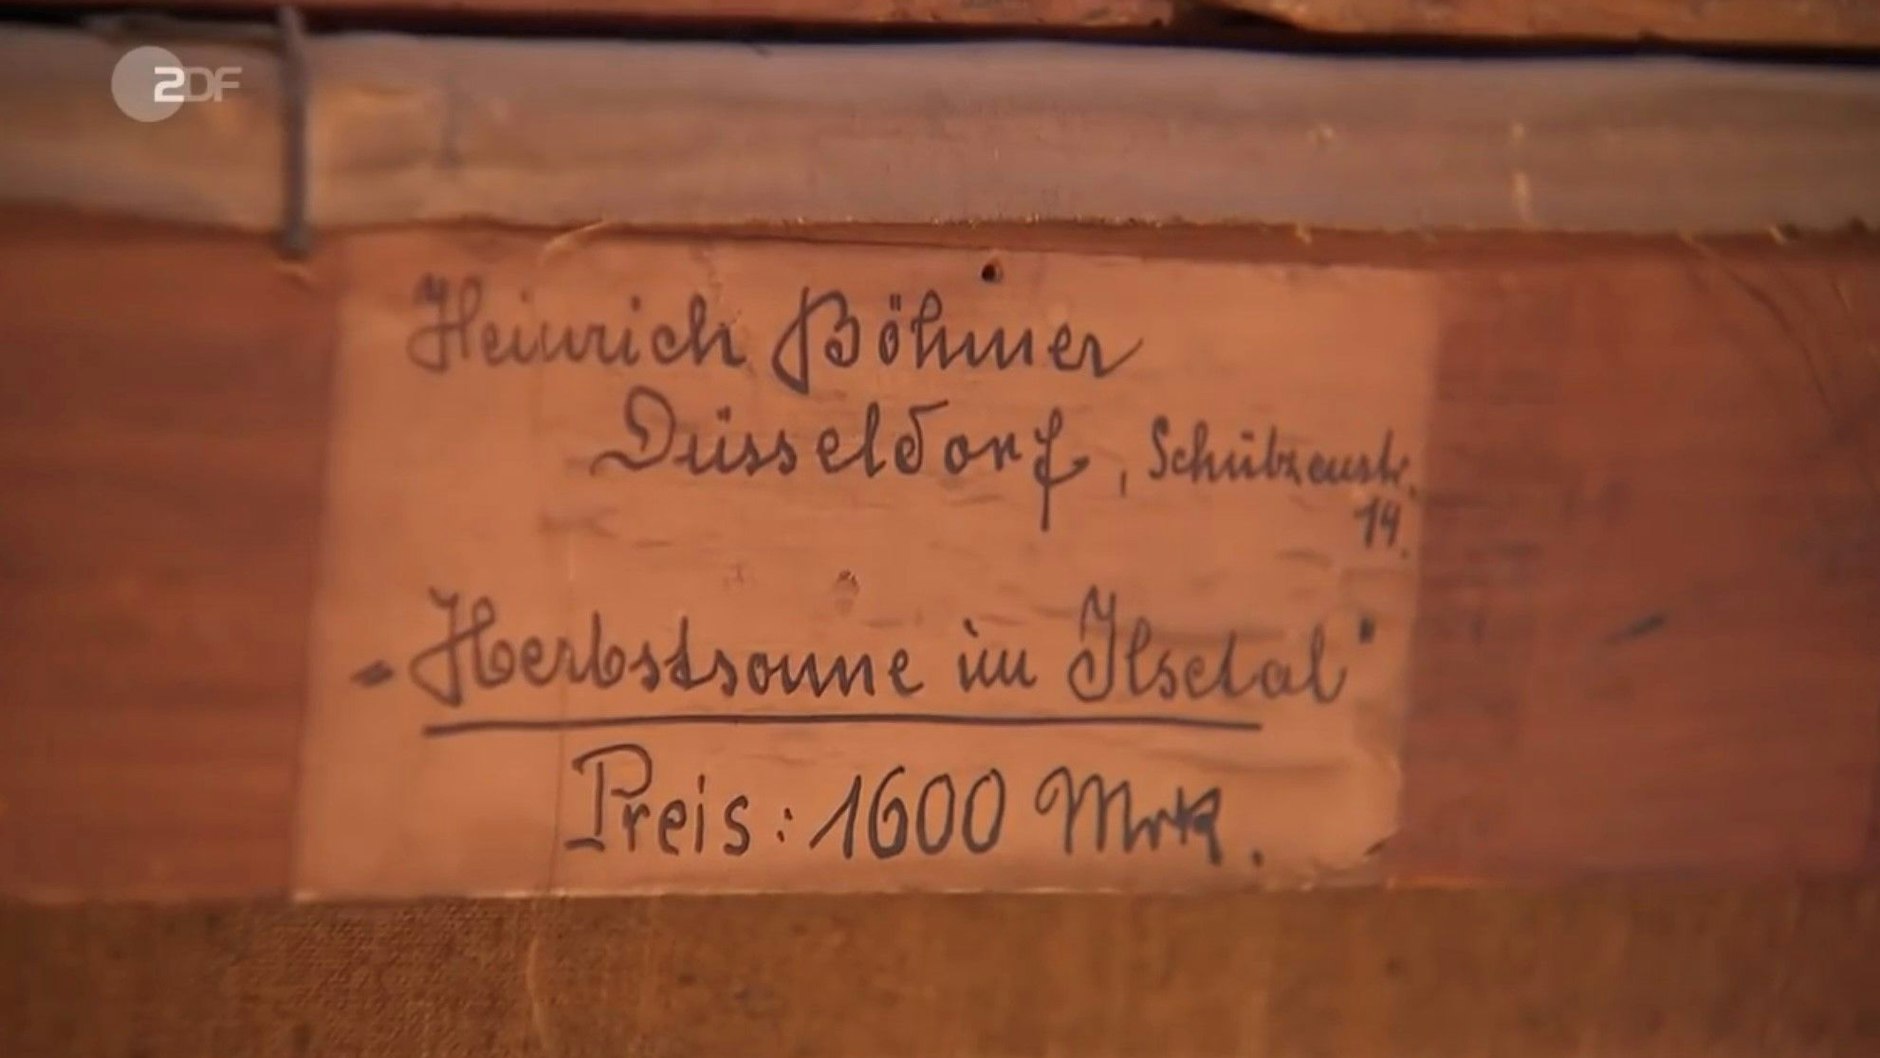 ZDF
Heinrich Böhmer
Düsseldorf, Schützenstr.
14.
„Herbstsonne im Ilsetal"
Preis: 1600 Mrk.